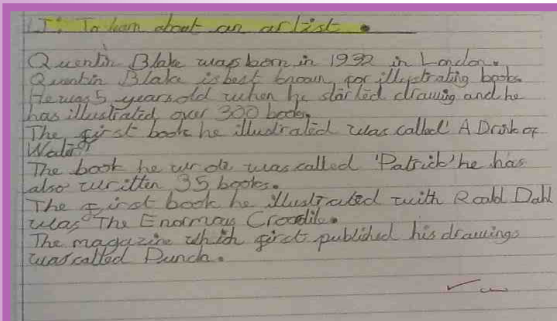 LI: To learn about an artist.
Quentin Blake was born in 1932 in London.
Quentin Blake is best known for illustrating books.
He was 5 years old when he started drawing and he
has illustrated over 300 books.
The first book he illustrated was called 'A Drink of
Water'.
The book he wrote was called 'Patrick' he has
also written 35 books.
The first book he illustrated with Roald Dahl
was The Enormous Crocodile.
The magazine which first published his drawings
was called Punch.